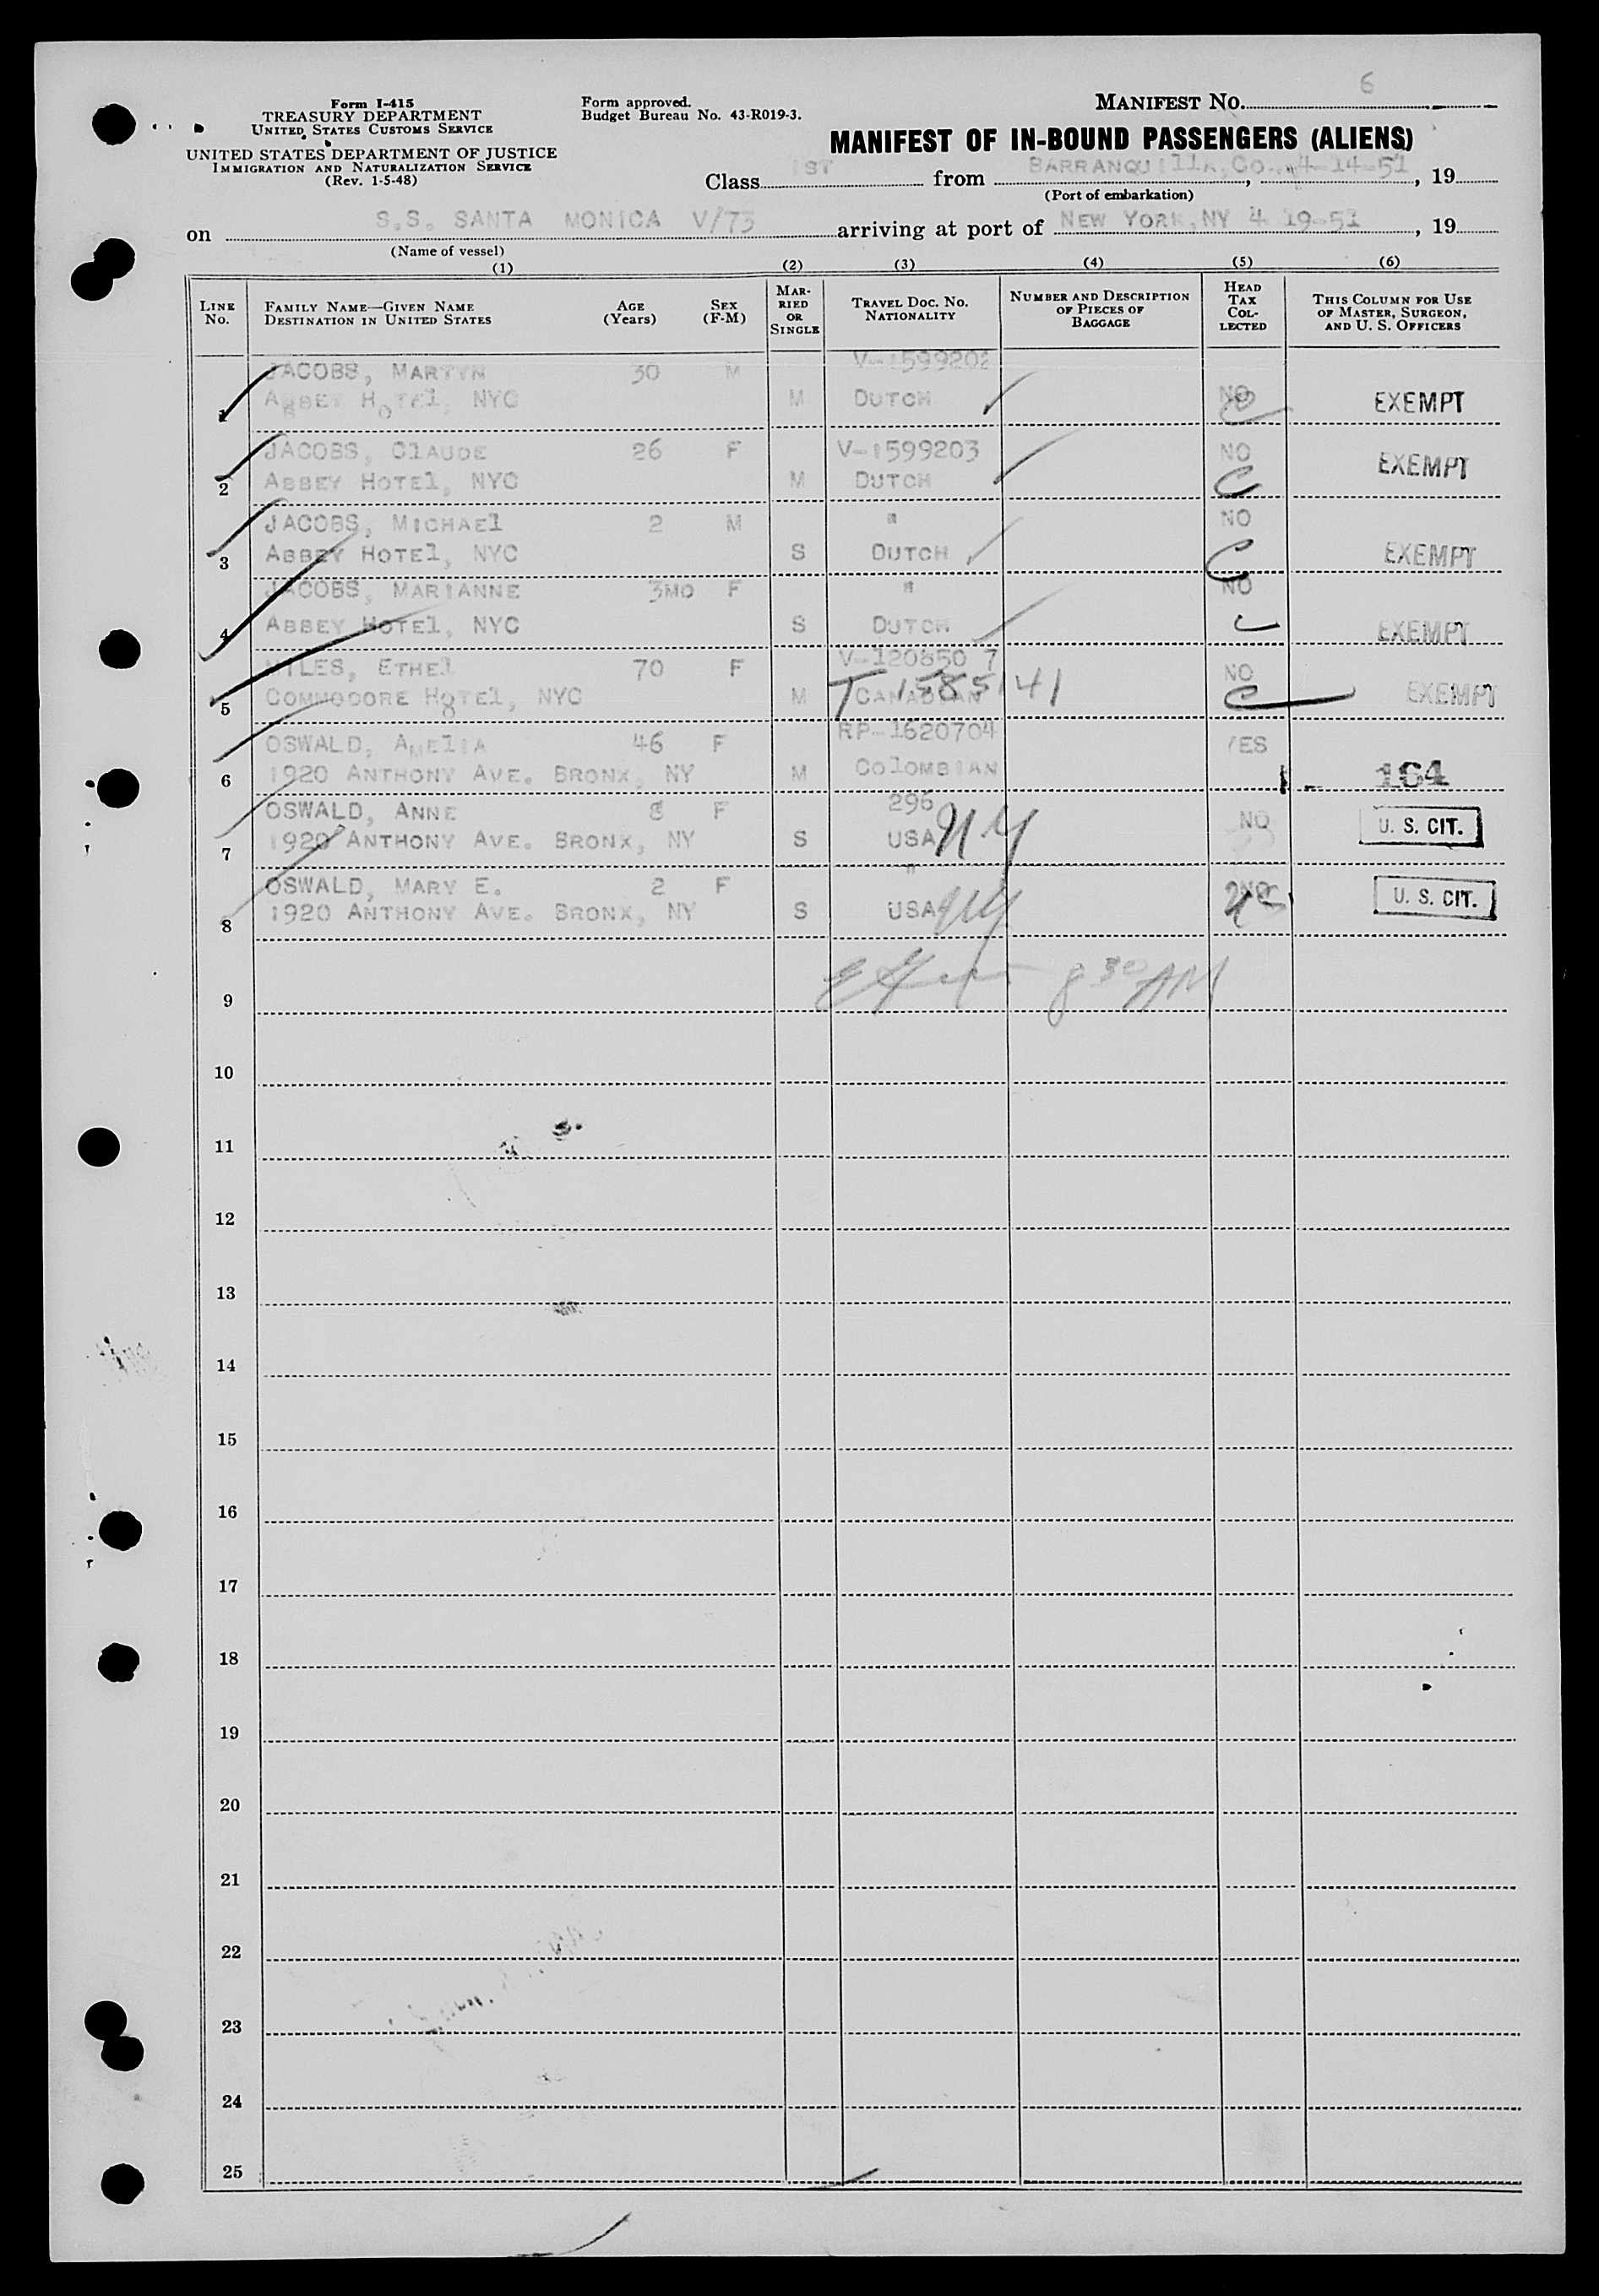 6
Form I-415
TREASURY DEPARTMENT
UNITED STATES CUSTOMS SERVICE
UNITED STATES DEPARTMENT OF JUSTICE
IMMIGRATION AND NATURALIZATION SERVICE
(Rev. 1-5-48)
Form approved.
Budget Bureau No. 43-R019-3.
MANIFEST NO.
MANIFEST OF IN-BOUND PASSENGERS (ALIENS)
Class 1ST from BARRANQUIllA, CO., 4-14-51, 19
(Port of embarkation)
on S.S. SANTA MONICA V/73 arriving at port of NEW YORK, NY 4 19-51, 19
(Name of vessel)
(1) (2) (3) (4) (5) (6)
LINE NO. FAMILY NAME—GIVEN NAME DESTINATION IN UNITED STATES AGE (Years) SEX (F-M) MARRIED OR SINGLE TRAVEL DOC. NO. NATIONALITY NUMBER AND DESCRIPTION OF PIECES OF BAGGAGE HEAD TAX COLLECTED THIS COLUMN FOR USE OF MASTER, SURGEON, AND U. S. OFFICERS
JACOBS, MARTYN 30 M V-1599202
1 ABBEY HOTEl, NYC M DUTCH NO EXEMPT
JACOBS, ClAUDE 26 F V-1599203 NO
2 ABBEY HOTEl, NYC M DUTCH EXEMPT
JACOBS, MICHAEl 2 M " NO
3 ABBEY HOTEl, NYC S DUTCH EXEMPT
JACOBS, MARIANNE 3MO F " NO
4 ABBEY HOTEl, NYC S DUTCH EXEMPT
ETHEl 70 F V-120850 7 NO
5 COMMODORE HOTEl, NYC M CANADIAN T 1585141 EXEMPT
OSWALD, AMElIA 46 F RP-1620704 YES
6 1920 ANTHONY AVE. BRONX, NY M COlOMBIAN 164
OSWALD, ANNE 8 F 296 NO
7 1920 ANTHONY AVE. BRONX, NY S USA NY U. S. CIT.
OSWALD, MARY E. 2 F " NO
8 1920 ANTHONY AVE. BRONX, NY S USA NY U. S. CIT.
9 8 30 AM
10
11
12
13
14
15
16
17
18
19
20
21
22
23
24
25